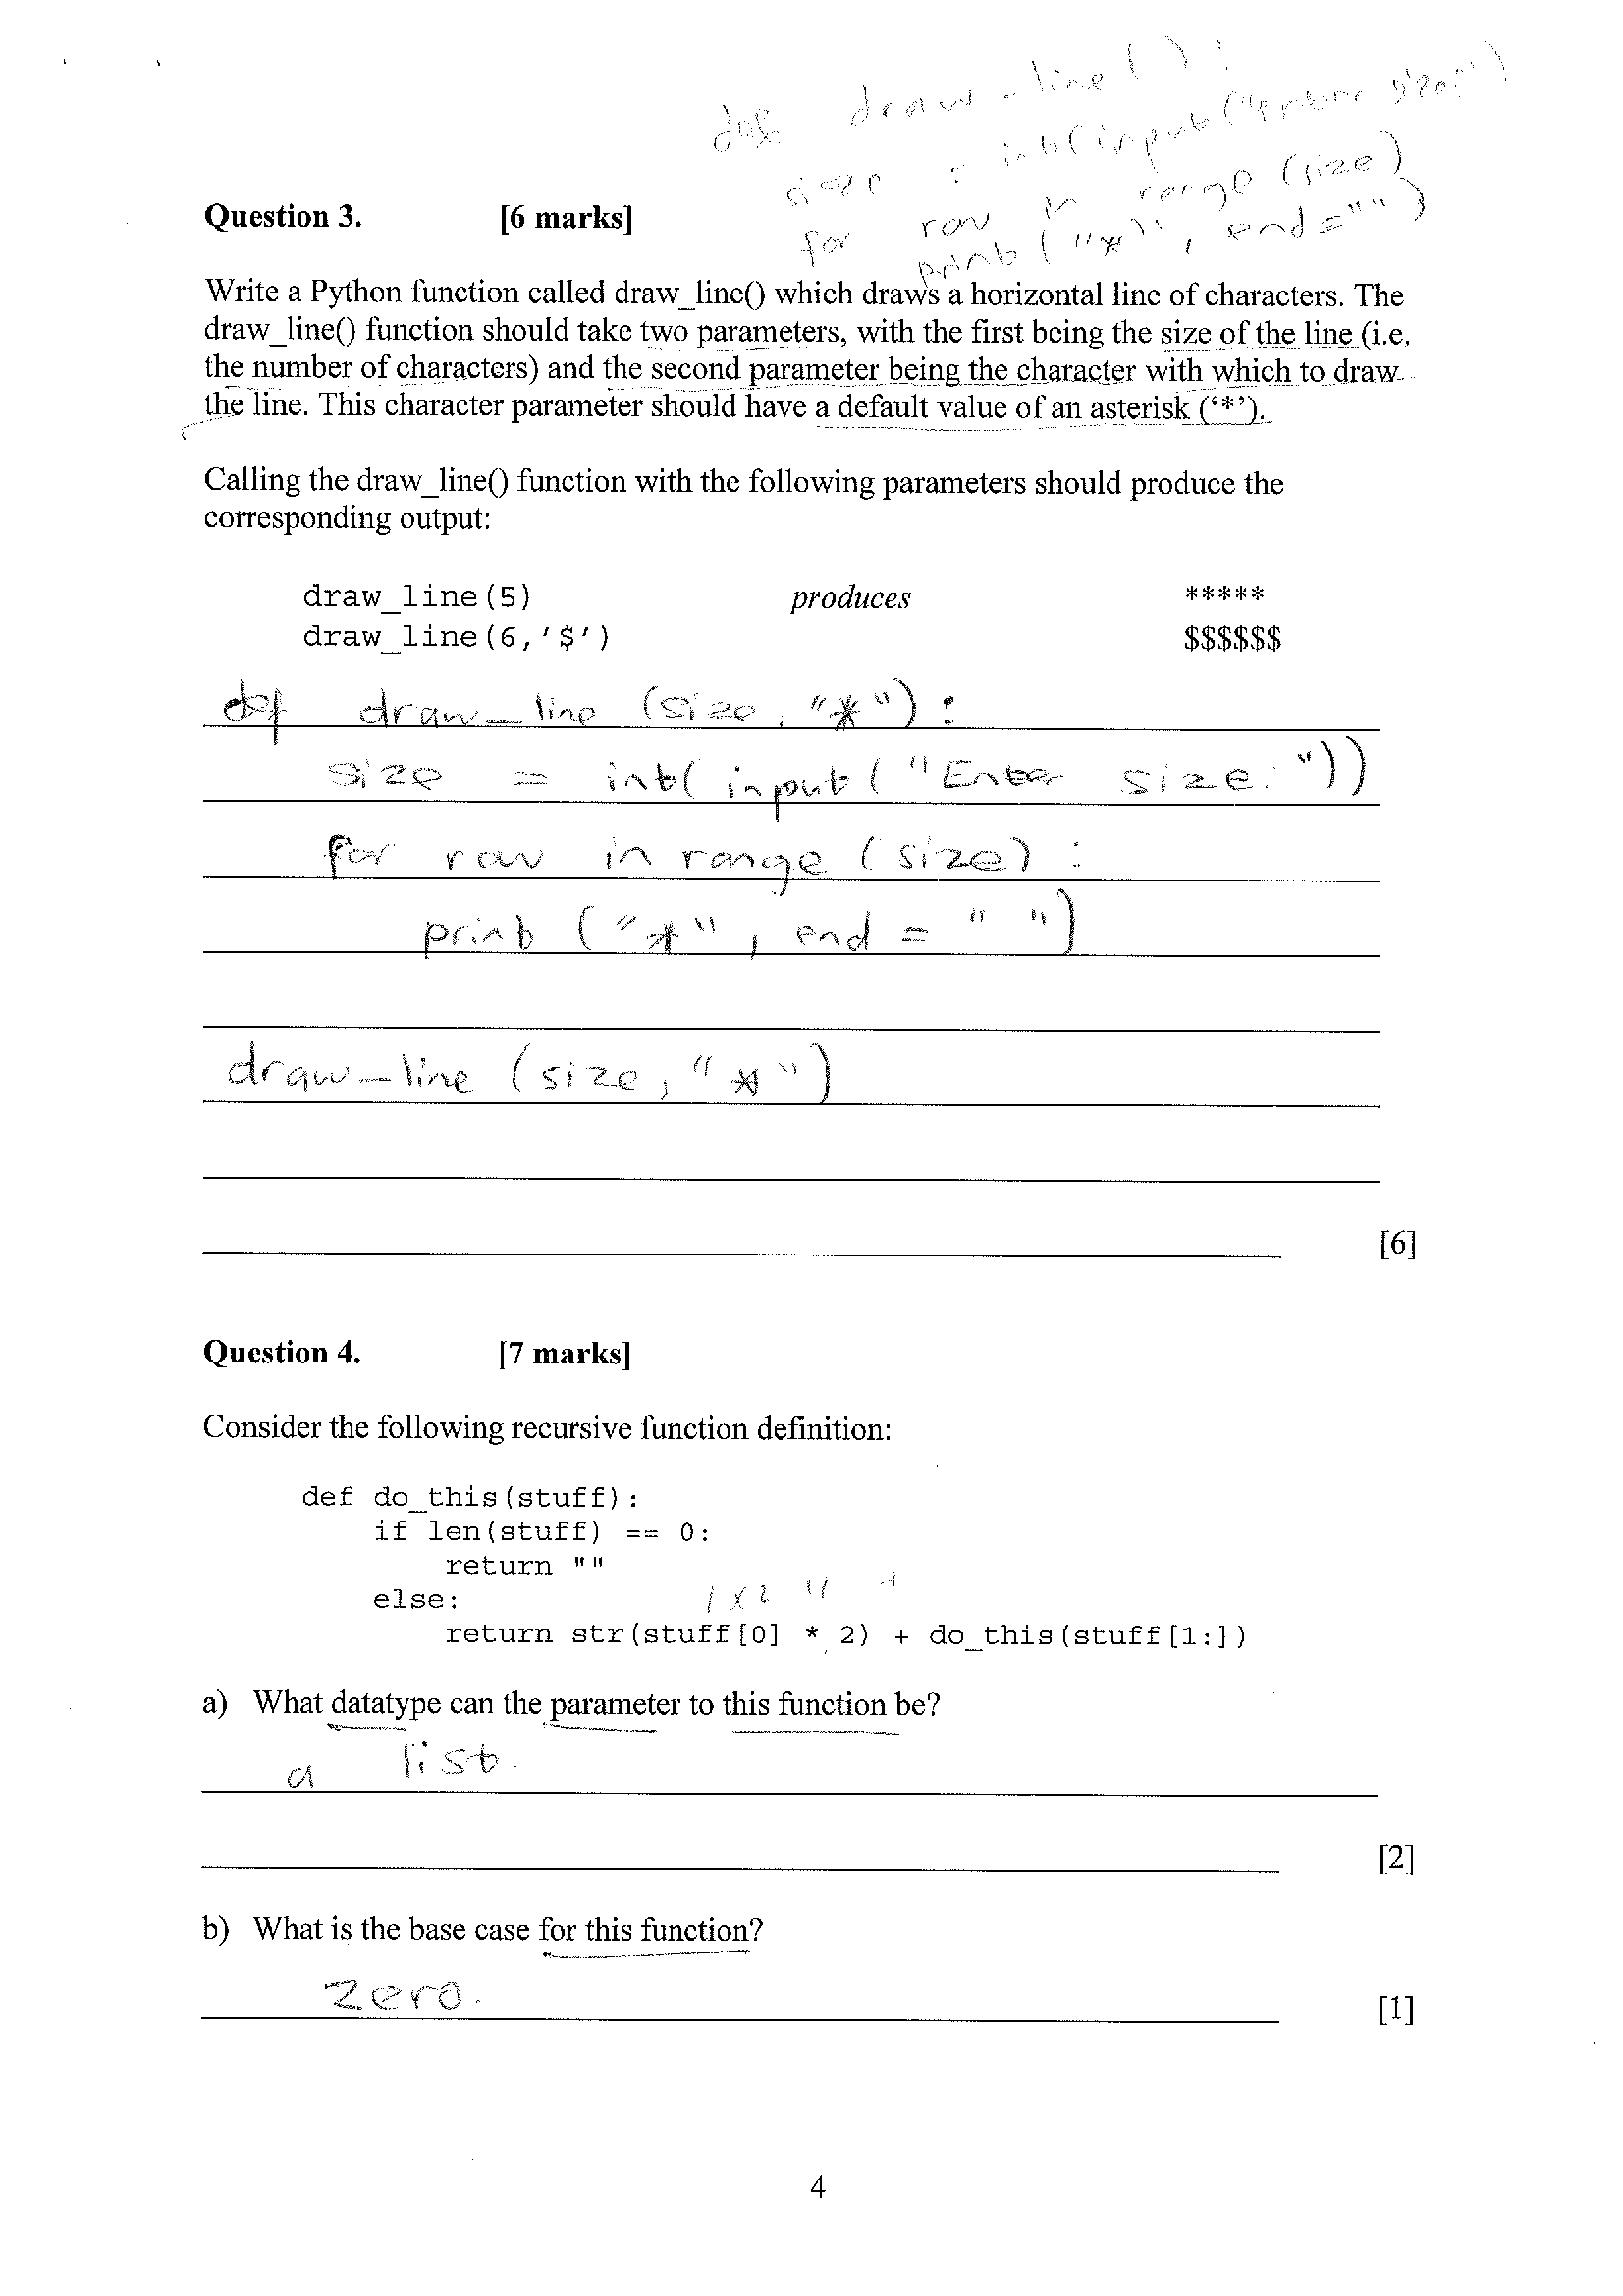 def draw_line():
size = int(input("Enter size:")
for row in range(size)
print("*", end="")
Question 3. [6 marks]
Write a Python function called draw_line() which draws a horizontal line of characters. The
draw_line() function should take two parameters, with the first being the size of the line (i.e.
the number of characters) and the second parameter being the character with which to draw
the line. This character parameter should have a default value of an asterisk ('*').
Calling the draw_line() function with the following parameters should produce the
corresponding output:
draw_line(5) produces *****
draw_line(6,'$') $$$$$$
def draw_line (size, "*"):
size = int(input("Enter size:"))
for row in range (size):
print ("*", end = " ")
draw_line (size, "*")
[6]
Question 4. [7 marks]
Consider the following recursive function definition:
def do_this(stuff):
if len(stuff) == 0:
return ""
else:
1x2
return str(stuff[0] * 2) + do_this(stuff[1:])
a) What datatype can the parameter to this function be?
a list.
[2]
b) What is the base case for this function?
zero.
[1]
4